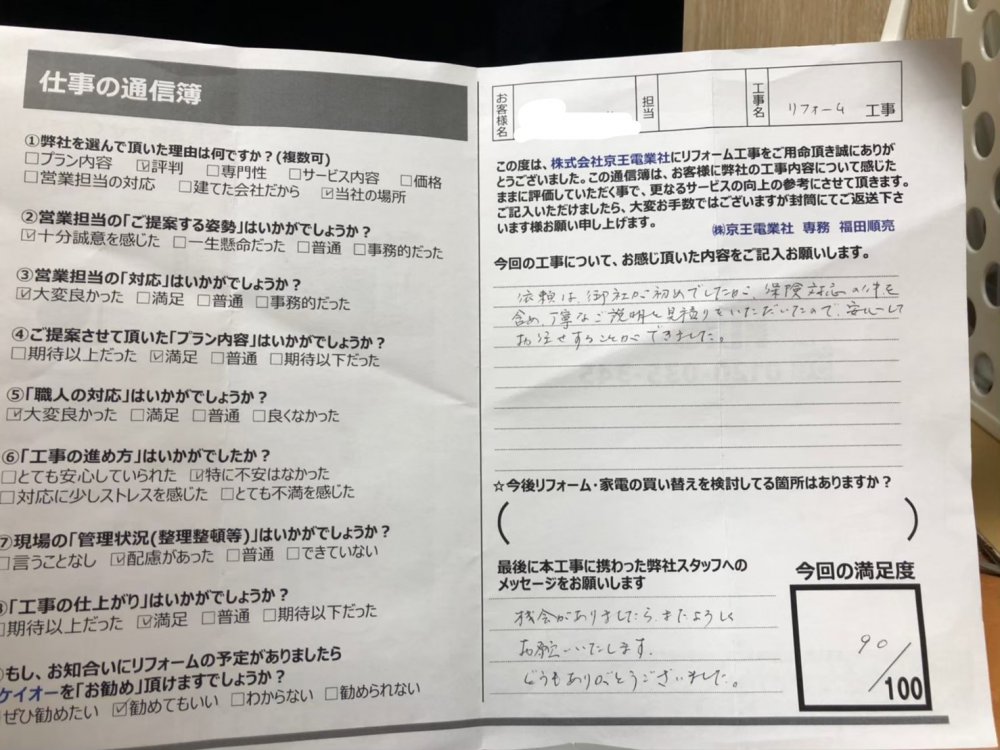 仕事の通信簿
①弊社を選んで頂いた理由は何ですか？(複数可)
□プラン内容 ☑評判 □専門性 □サービス内容 □価格
□営業担当の対応 □建てた会社だから ☑当社の場所
②営業担当の「ご提案する姿勢」はいかがでしょうか？
☑十分誠意を感じた □一生懸命だった □普通 □事務的だった
③営業担当の「対応」はいかがでしょうか？
☑大変良かった □満足 □普通 □事務的だった
④ご提案させて頂いた「プラン内容」はいかがでしょうか？
□期待以上だった ☑満足 □普通 □期待以下だった
⑤「職人の対応」はいかがでしょうか？
☑大変良かった □満足 □普通 □良くなかった
⑥「工事の進め方」はいかがでしたか？
□とても安心していられた ☑特に不安はなかった
□対応に少しストレスを感じた □とても不満を感じた
⑦現場の「管理状況(整理整頓等)」はいかがでしょうか？
□言うことなし ☑配慮があった □普通 □できていない
「工事の仕上がり」はいかがでしょうか？
□期待以上だった ☑満足 □普通 □期待以下だった
もし、お知合いにリフォームの予定がありましたら
ケイオーを「お勧め」頂けますでしょうか？
ぜひ勧めたい ☑勧めてもいい □わからない □勧められない
お客様名 担当 工事名 リフォーム 工事
この度は、株式会社京王電業社にリフォーム工事をご用命頂き誠にありが
とうございました。この通信簿は、お客様に弊社の工事内容について感じた
ままに評価していただく事で、更なるサービスの向上の参考にさせて頂きます。
ご記入いただけましたら、大変お手数ではございますが封筒にてご返送下さ
います様お願い申し上げます。 ㈱京王電業社 専務 福田順亮
今回の工事について、お感じ頂いた内容をご記入お願いします。
依頼は、御社が初めてでしたが、保険対応の件を
含め、丁寧なご説明と見積りをいただいたので、安心して
お任せすることができました。
☆今後リフォーム・家電の買い替えを検討してる箇所はありますか？
( )
最後に本工事に携わった弊社スタッフへの
メッセージをお願いします
機会がありましたら、またよろしく
お願いいたします。
どうもありがとうございました。
今回の満足度
90/100